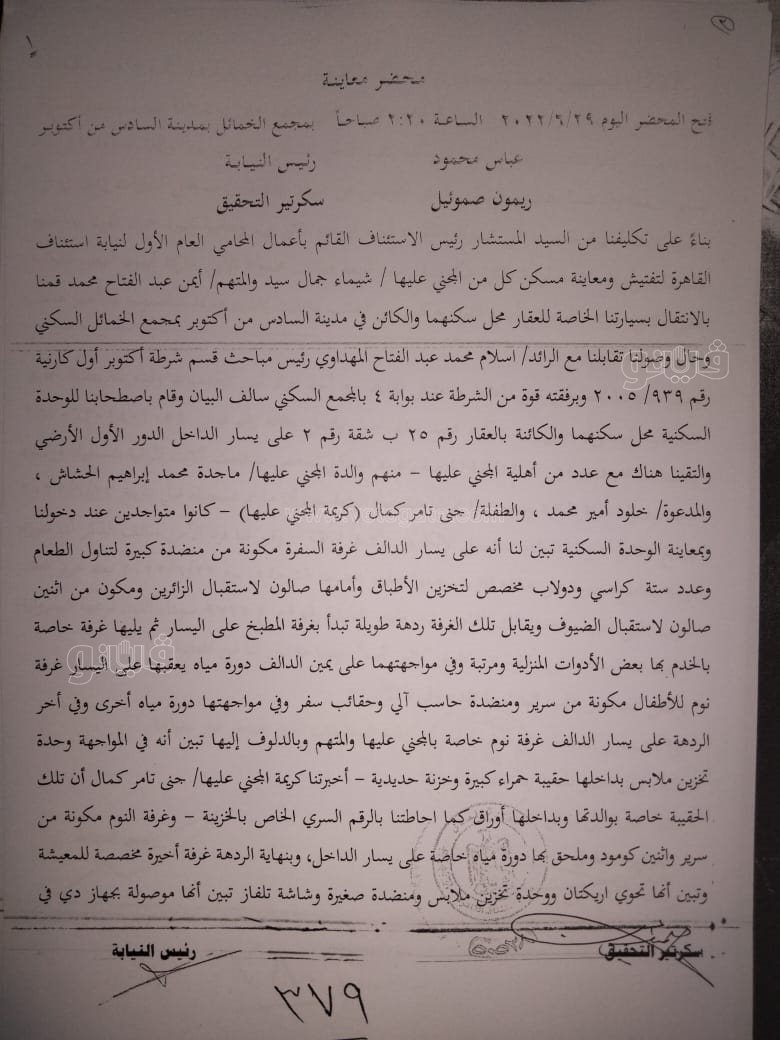 ٣
١
محضر معاينة
فتح المحضر اليوم ٢٠٢٢/٦/٢٩ الساعة ٢:٢٠ صباحاً بمجمع الخمائل بمدينة السادس من أكتوبر
عباس محمود رئيس النيابة
ريمون صموئيل سكرتير التحقيق
بناءً على تكليفنا من السيد المستشار رئيس الاستئناف القائم بأعمال المحامي العام الأول لنيابة استئناف
القاهرة لتفتيش ومعاينة مسكن كل من المجني عليها / شيماء جمال سيد والمتهم/ أيمن عبد الفتاح محمد قمنا
بالانتقال بسيارتنا الخاصة للعقار محل سكنهما والكائن في مدينة السادس من أكتوبر بمجمع الخمائل السكني
وحال وصولنا تقابلنا مع الرائد/ اسلام محمد عبد الفتاح المهداوي رئيس مباحث قسم شرطة أكتوبر أول كارنية
رقم ٩٣٩/ ٢٠٠٥ وبرفقته قوة من الشرطة عند بوابة ٤ بالمجمع السكني سالف البيان وقام باصطحابنا للوحدة
السكنية محل سكنهما والكائنة بالعقار رقم ٢٥ ب شقة رقم ٢ على يسار الداخل الدور الأول الأرضي
والتقينا هناك مع عدد من أهلية المجني عليها - منهم والدة المجني عليها/ ماجدة محمد إبراهيم الحشاش ،
والمدعوة/ خلود أمير محمد ، والطفلة/ جنى تامر كمال (كريمة المجني عليها) - كانوا متواجدين عند دخولنا
وبمعاينة الوحدة السكنية تبين لنا أنه على يسار الدالف غرفة السفرة مكونة من منضدة كبيرة لتناول الطعام
وعدد ستة كراسي ودولاب مخصص لتخزين الأطباق وأمامها صالون لاستقبال الزائرين ومكون من اثنين
صالون لاستقبال الضيوف ويقابل تلك الغرفة ردهة طويلة تبدأ بغرفة المطبخ على اليسار ثم يليها غرفة خاصة
بالخدم بها بعض الأدوات المنزلية ومرتبة وفي مواجهتهما على يمين الدالف دورة مياه يعقبها على اليسار غرفة
نوم للأطفال مكونة من سرير ومنضدة حاسب آلي وحقائب سفر وفي مواجهتها دورة مياه أخرى وفي أخر
الردهة على يسار الدالف غرفة نوم خاصة بالمجني عليها والمتهم وبالدلوف إليها تبين أنه في المواجهة وحدة
تخزين ملابس بداخلها حقيبة حمراء كبيرة وخزنة حديدية - أخبرتنا كريمة المجني عليها/ جنى تامر كمال أن تلك
الحقيبة خاصة بوالدتها وبداخلها أوراق كما احاطتنا بالرقم السري الخاص بالخزينة - وغرفة النوم مكونة من
سرير واثنين كومود وملحق بها دورة مياه خاصة على يسار الداخل، وبنهاية الردهة غرفة أخيرة مخصصة للمعيشة
وتبين أنها تحوي اريكتان ووحدة تخزين ملابس ومنضدة صغيرة وشاشة تلفاز تبين أنها موصولة بجهاز دي في
سكرتير التحقيق رئيس النيابة
٣٧٩
فيتو